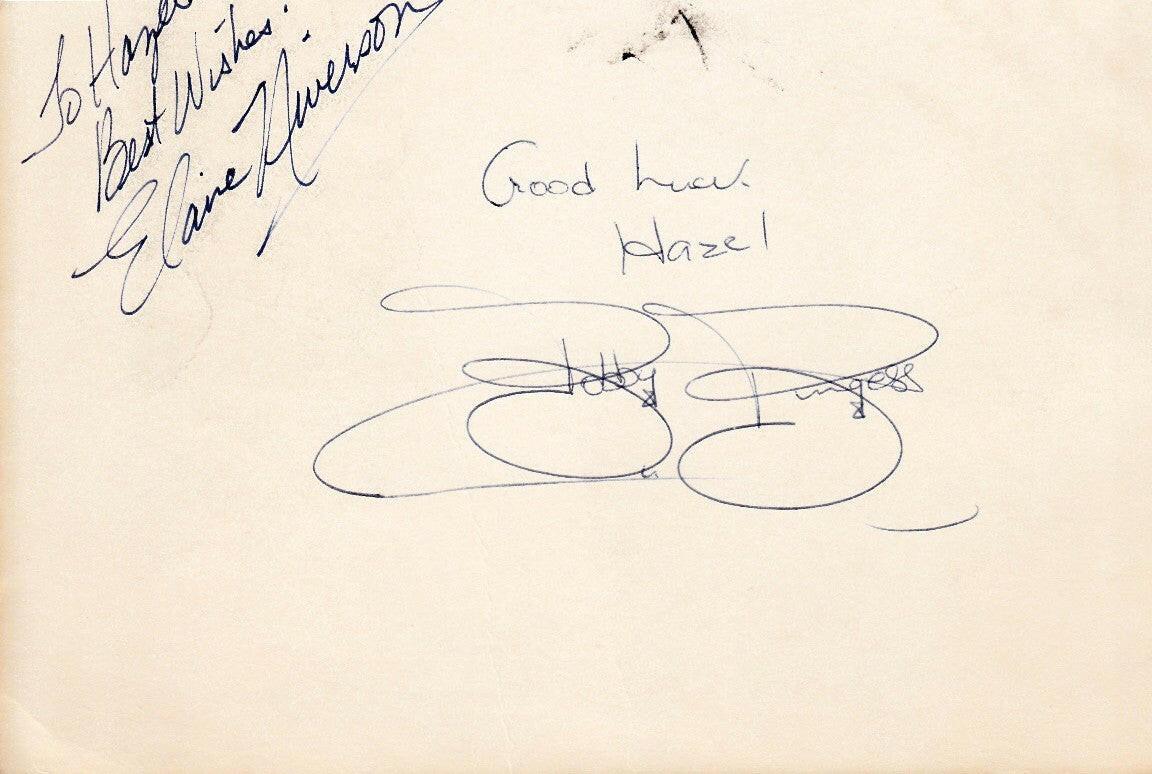 To Hazel
Best Wishes.
Elaine Niverson
Good Luck
Hazel
Bobby Burgess